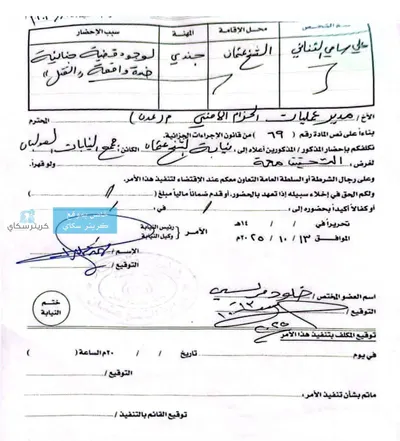 محل الإقامة المهنة سبب الإحضار
علي سامي الشيخ عثمان جندي لوجود قضية جنائية
ضده واقعة «القتل»
الأخ/ مدير عمليات الحزام الأمني م/عدن المحترم
بناءاً على نص المادة رقم (٦٩) من قانون الإجراءات الجزائية.
نكلفكم بإحضار المذكور / المذكورين أعلاه إلى، نيابة الشيخ عثمان الكائن: مجمع النيابات
لغرض، التحقيق معه ولو قهراً.
وعلى رجال الشرطة أو السلطة العامة التعاون معكم عند الإقتضاء لتنفيذ هذا الأمر.
ولكم الحق في إخلاء سبيله إذا تعهد بالحضور، أو قدم ضماناً مالياً مبلغ ( )
أو كفالاً أكيداً بحضوره إلى، في،
تحريراً في / / ١٤هـ
الموافق ١٣ / ١٠ / ٢٠٢٥م
الأمر
رئيس النيابة
وكيل النيابة
الإسم /
التوقيع /
خاص بموقع
كريتر سكاي
كريتر سكاي
اسم العضو المختص /
التوقيع /
ختم
النيابة
توقيع المكلف بتنفيذ هذا الأمر
في يوم تاريخ / / ٢٠م الساعة ( )
التوقيع /
ماتم بشأن تنفيذ الأمر،
توقيع القائم بالتنفيذ /